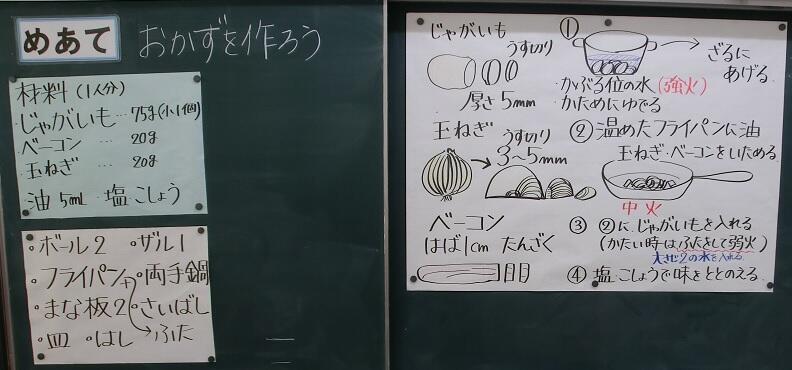 めあて おかずを作ろう
材料(1人分)
じゃがいも…75g(小1個)
ベーコン…20g
玉ねぎ…20g
油5mL 塩・こしょう
・ボール2 ・ザル1
・フライパン ・両手鍋
・まな板2 ・さいばし
・皿 ・はし ふた
じゃがいも
うすぎり
厚さ5mm
玉ねぎ うすぎり
3〜5mm
ベーコン
はば1cm たんざく
① ざるに
あげる
・かぶる位の水(強火)
・かためにゆでる
②温めたフライパンに油
玉ねぎ・ベーコンをいためる
中火
③ ②にじゃがいもを入れる
(かたい時はふたをして弱火)
大さじ2の水を入れる
④塩・こしょうで味をととのえる